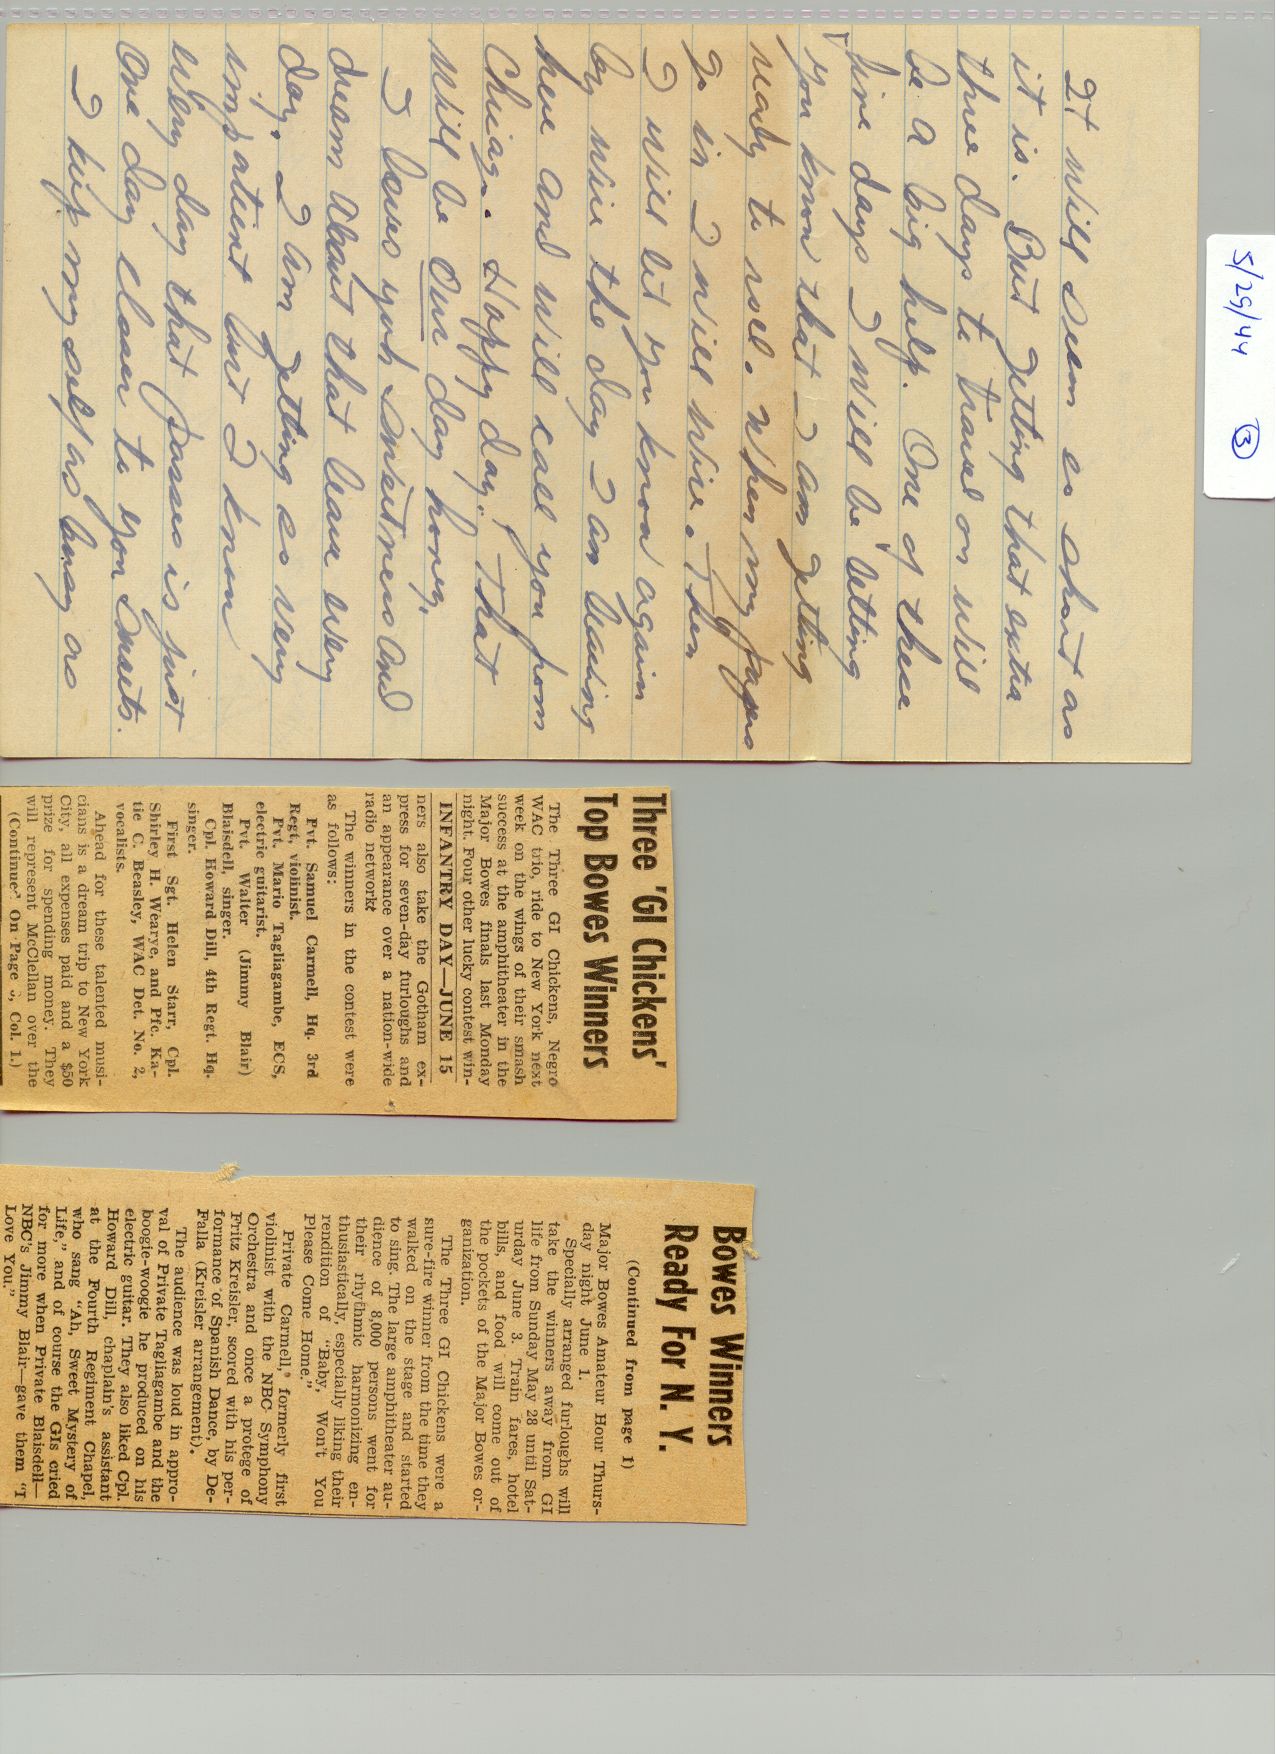 5/29/44 ③
It will seem so short as
it is. But getting that extra
three days to travel on will
be a big help. One of these
fine days I will be betting
you know that I am getting
ready to roll. When my papers
go in I will wire. Then
I will let you know again
by wire the day I am leaving
here and will call you from
Chicago. Happy day! That
will be our day honey,
I love you Sweetness and
dream about that leave every
day. I am getting so very
impatient but I know
every day that passes is just
one day closer to you Sweets.
I keep my self as busy as
Three 'GI Chickens'
Top Bowes Winners
The Three GI Chickens, Negro
WAC trio, ride to New York next
week on the wings of their smash
success at the amphitheater in the
Major Bowes finals last Monday
night. Four other lucky contest win-
INFANTRY DAY—JUNE 15
ners also take the Gotham ex-
press for seven-day furloughs and
an appearance over a nation-wide
radio network
The winners in the contest were
as follows:
Pvt. Samuel Carmell, Hq. 3rd
Regt, violinist.
Pvt. Mario Tagliagambe, ECS,
electric guitarist.
Pvt. Walter (Jimmy Blair)
Blaisdell, singer.
Cpl. Howard Dill, 4th Regt. Hq.
singer.
First Sgt. Helen Starr, Cpl.
Shirley H. Wearye, and Pfc. Ka-
tie C. Beasley, WAC Det. No. 2,
vocalists.
Ahead for these talented musi-
cians is a dream trip to New York
City, all expenses paid and a $50
prize for spending money. They
will represent McClellan over the
(Continue On Page 3, Col. 1.)
Bowes Winners
Ready For N. Y.
(Continued from page 1)
Major Bowes Amateur Hour Thurs-
day night June 1.
Specially arranged furloughs will
take the winners away from GI
life from Sunday May 28 until Sat-
urday June 3. Train fares, hotel
bills, and food will come out of
the pockets of the Major Bowes or-
ganization.
The Three GI Chickens were a
sure-fire winner from the time they
walked on the stage and started
to sing. The large amphitheater au-
dience of 8,000 persons went for
their rhythmic harmonizing en-
thusiastically, especially liking their
rendition of "Baby, Won't You
Please Come Home."
Private Carmell, formerly first
violinist with the NBC Symphony
Orchestra and once a protege of
Fritz Kreisler, scored with his per-
formance of Spanish Dance, by De-
Falla (Kreisler arrangement).
The audience was loud in appro-
val of Private Tagliagambe and the
boogie-woogie he produced on his
electric guitar. They also liked Cpl.
Howard Dill, chaplain's assistant
at the Fourth Regiment Chapel,
who sang "Ah, Sweet Mystery of
Life," and of course the GIs cried
for more when Private Blaisdell—
NBC's Jimmy Blair—gave them "I
Love You."